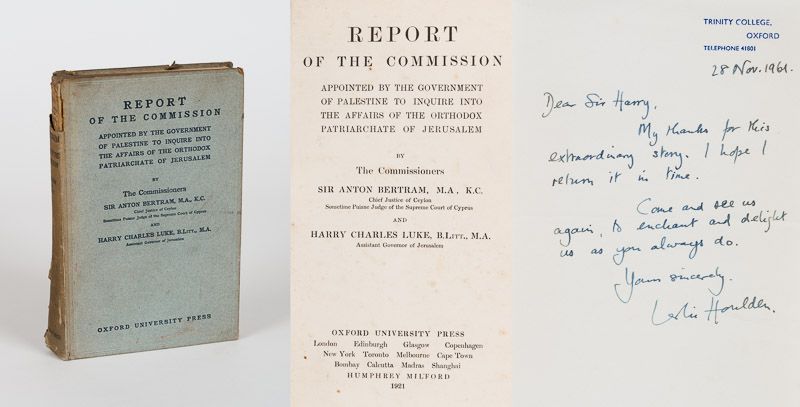 REPORT
OF THE COMMISSION
APPOINTED BY THE GOVERNMENT
OF PALESTINE TO INQUIRE INTO
THE AFFAIRS OF THE ORTHODOX
PATRIARCHATE OF JERUSALEM
BY
The Commissioners
SIR ANTON BERTRAM, M.A., K.C.
Chief Justice of Ceylon
Sometime Puisne Judge of the Supreme Court of Cyprus
AND
HARRY CHARLES LUKE, B.LITT., M.A.
Assistant Governor of Jerusalem
OXFORD UNIVERSITY PRESS
REPORT
OF THE COMMISSION
APPOINTED BY THE GOVERNMENT
OF PALESTINE TO INQUIRE INTO
THE AFFAIRS OF THE ORTHODOX
PATRIARCHATE OF JERUSALEM
BY
The Commissioners
SIR ANTON BERTRAM, M.A., K.C.
Chief Justice of Ceylon
Sometime Puisne Judge of the Supreme Court of Cyprus
AND
HARRY CHARLES LUKE, B.LITT., M.A.
Assistant Governor of Jerusalem
OXFORD UNIVERSITY PRESS
London Edinburgh Glasgow Copenhagen
New York Toronto Melbourne Cape Town
Bombay Calcutta Madras Shanghai
HUMPHREY MILFORD
1921
TRINITY COLLEGE,
OXFORD
TELEPHONE 41801
28 Nov. 1961.
Dear Sir Harry,
My thanks for this
extraordinary story. I hope I
return it in time.
Come and see us
again, to enchant and delight
us as you always do.
Yours sincerely,
Leslie Houlden.